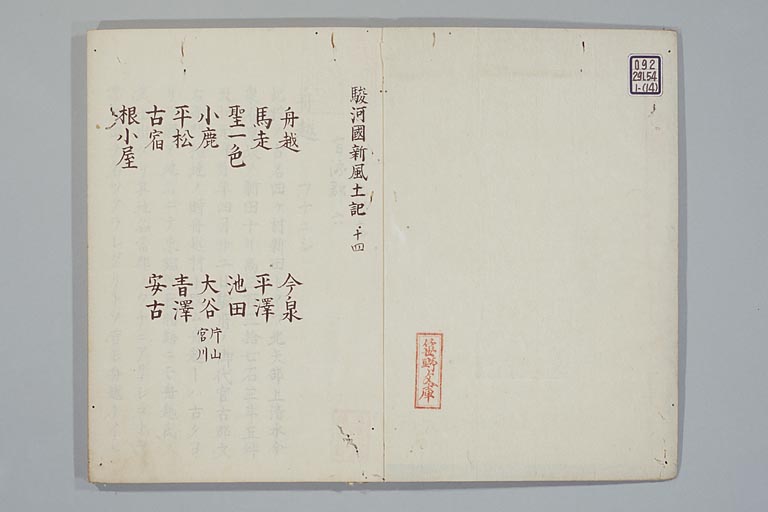 092
291.54
1-(14)
駿河國新風土記 十四
舟越 今泉
馬走 平澤
聖一色 池田
小鹿 大谷 片山 宮川
平松 青澤
古宿 安古
根小屋